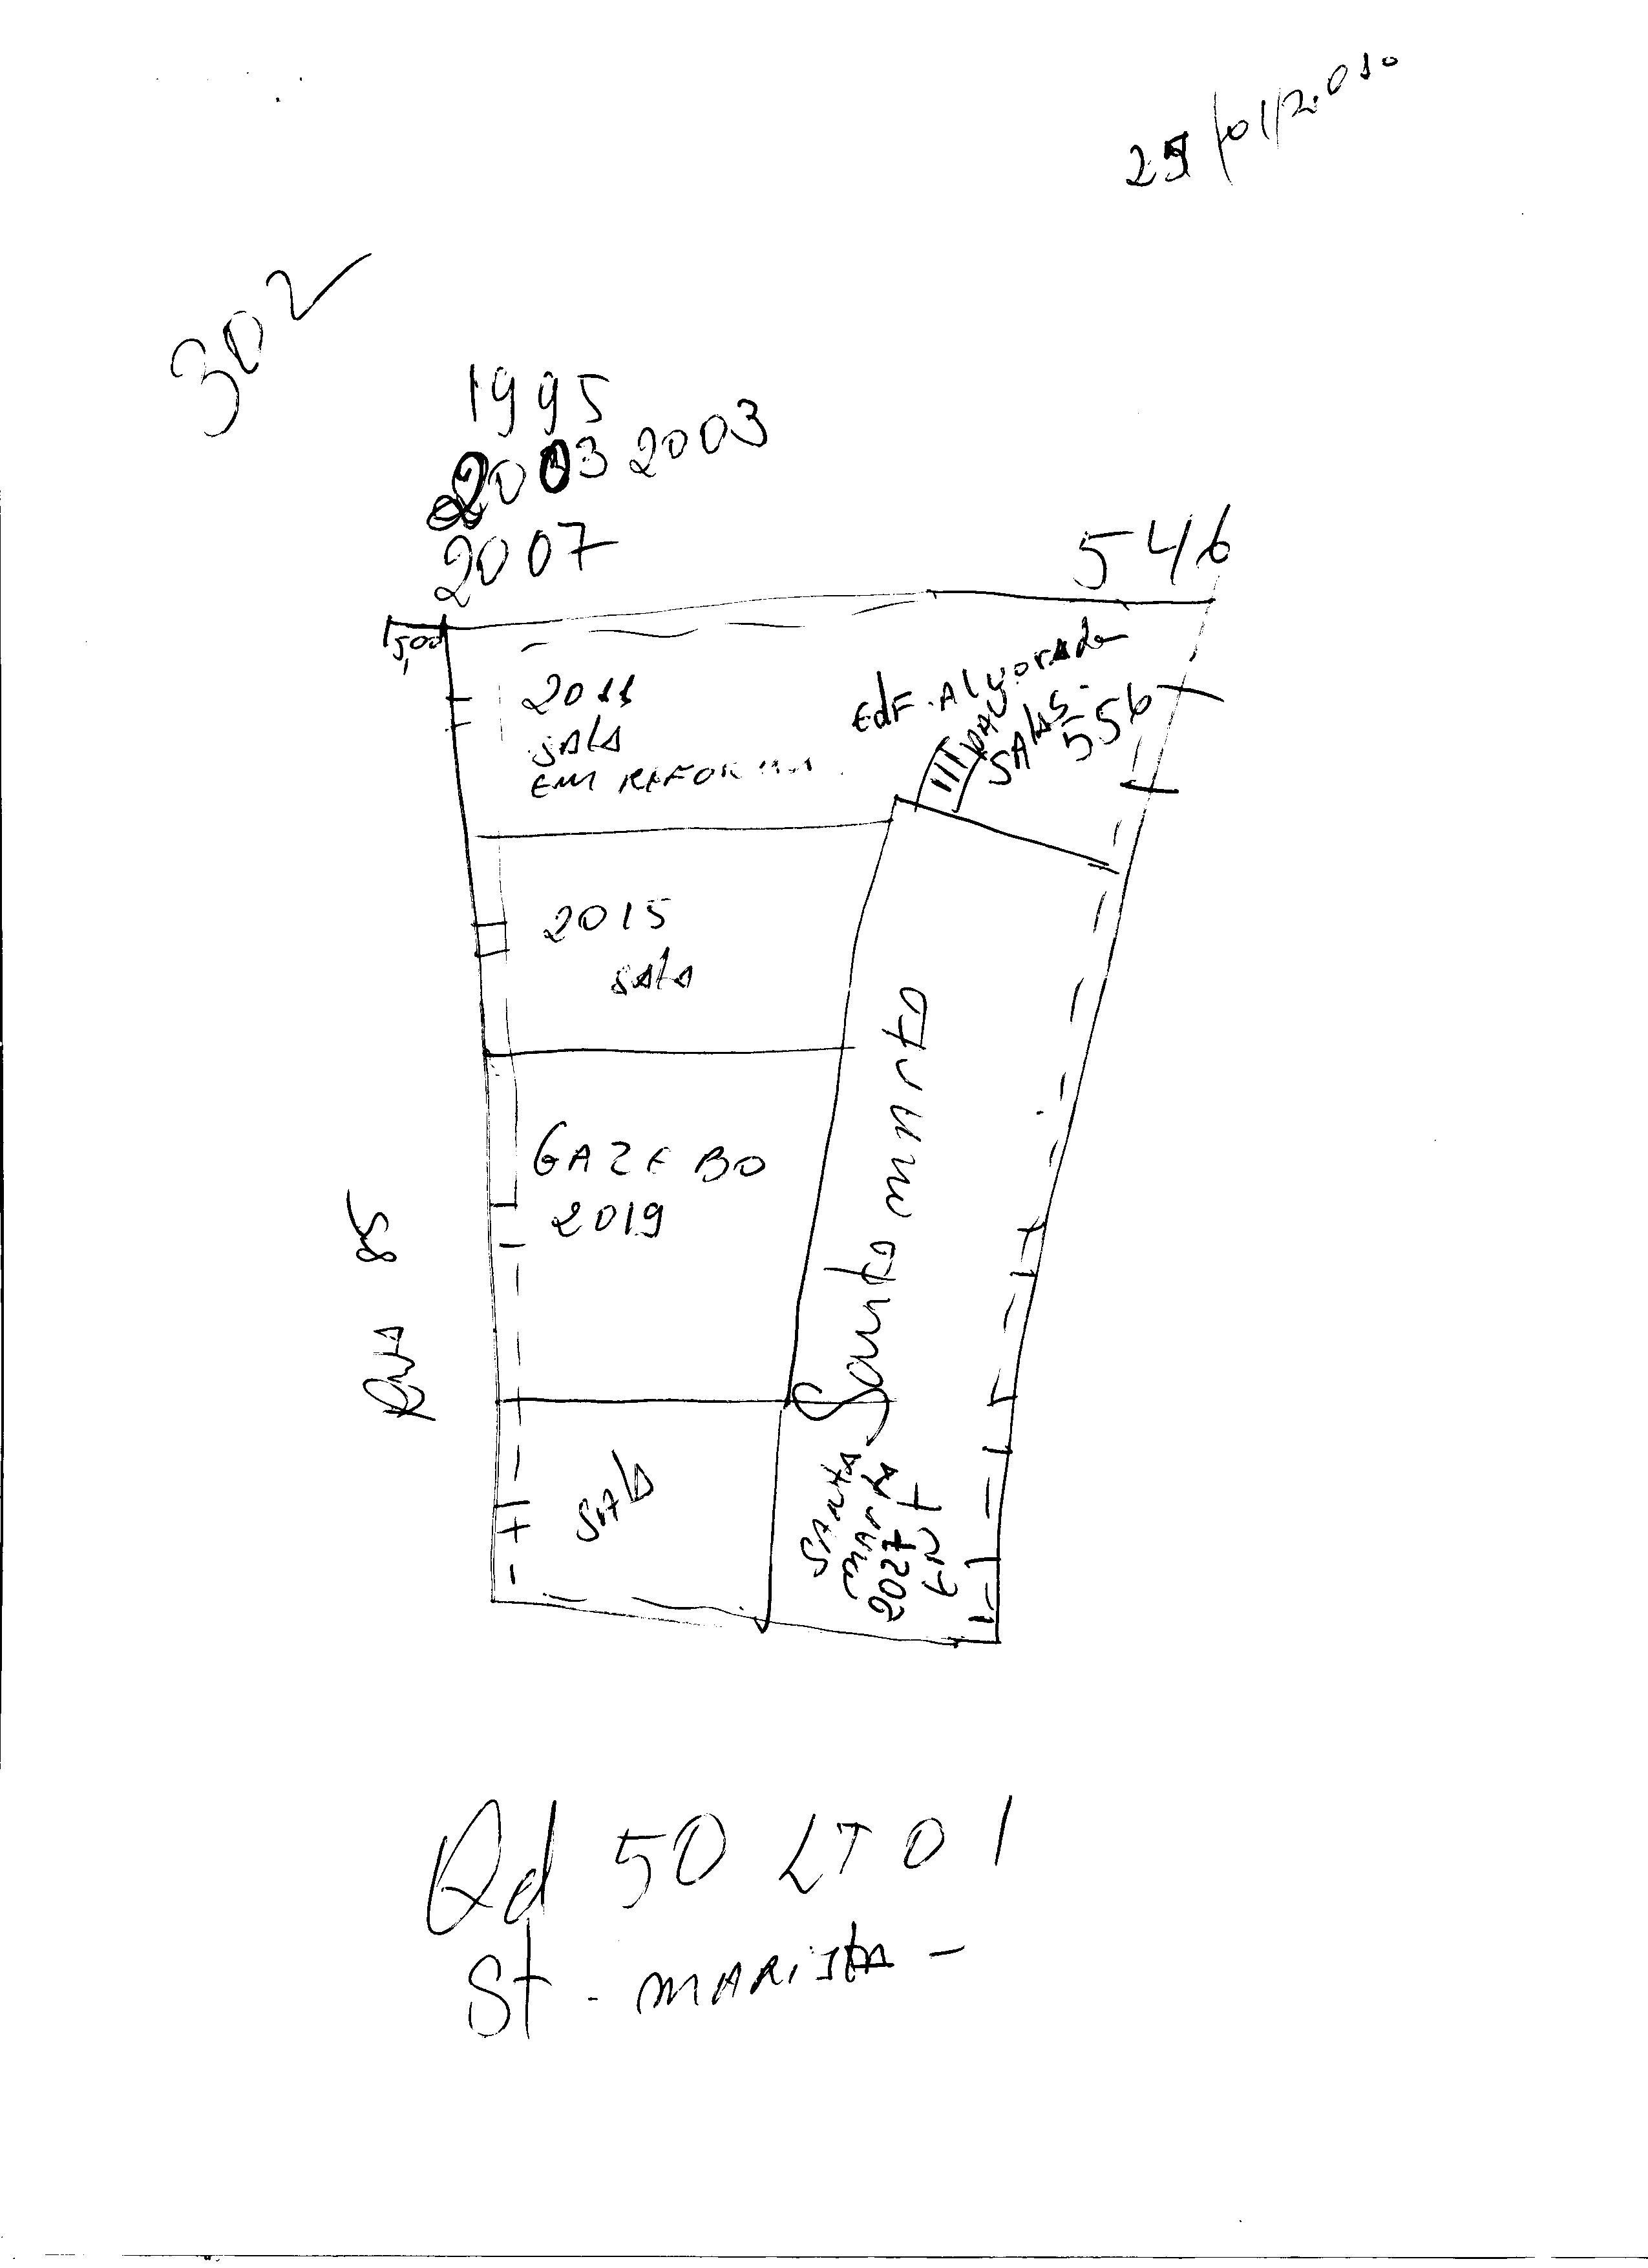 302
1995
2003 2003
2007
546
5,00
2011
SALA
EM REFORMA
EdF. Alvorada
SALAS -
556
2015
SALA
GAZEBO
2019
RUA 85
Santa marta
SALA
SANTA
MARTA
2027
ENT
Qd 50 LT 01
St. MARISTA -